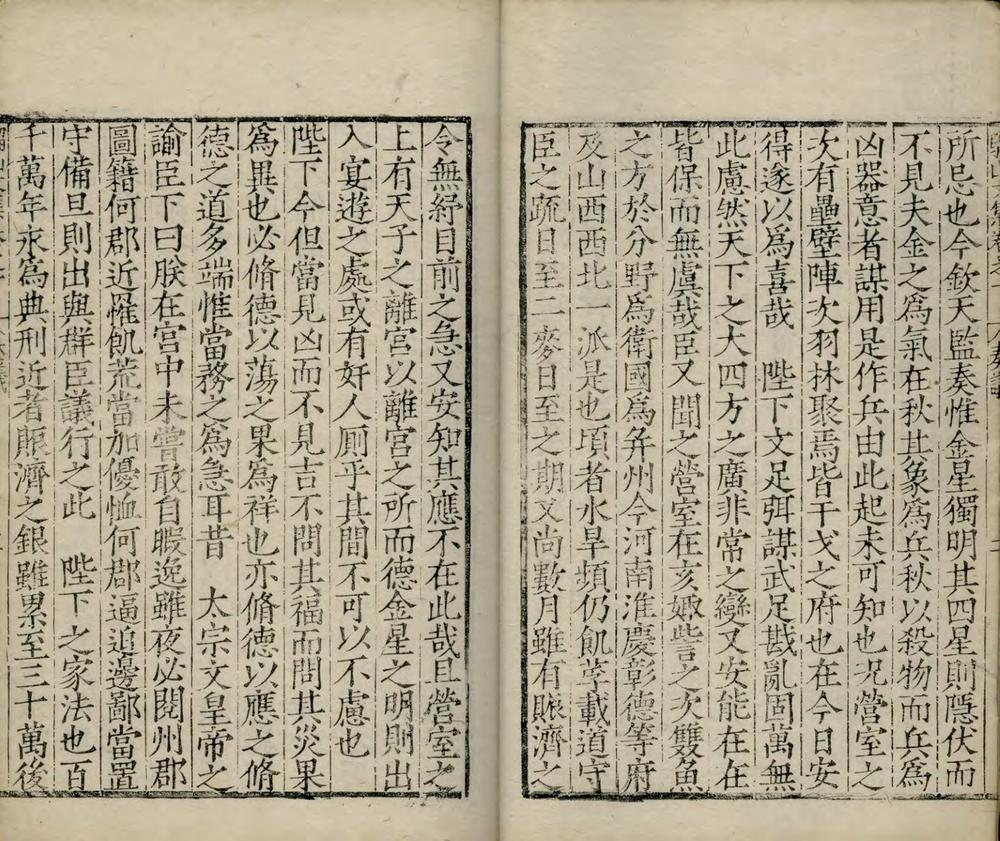 所忌也今欽天監奏惟金星獨明其四星則隱伏而
不見夫金之為氣在秋其象為兵秋以殺物而兵為
凶器意者謀用是作兵由此起未可知也况營室之
次有壘壁陣次羽林聚焉皆干戈之府也在今日安
得遂以為喜哉　陛下文足弭謀武足戡亂固萬無
此慮然天下之大四方之廣非常之變又安能在在
皆保而無虞哉臣又聞之營室在亥娵訾之次雙魚
之方於分野為衛國為并州今河南淮慶彰德等府
及山西西北一派是也頃者水旱頻仍飢莩載道守
臣之䟽日至二麥日至之期又尚數月雖有賑濟之
令無紓目前之急又安知其應不在此哉且營室之
上有天子之離宮以離宮之所而德金星之明則出
入宴遊之處或有奸人厠乎其間不可以不慮也
陛下今但當見凶而不見吉不問其福而問其災果
為異也必脩德以蕩之果為祥也亦脩德以應之脩
德之道多端惟當務之為急耳昔　太宗文皇帝之
諭臣下曰朕在宮中未嘗敢自暇逸雖夜必閱州郡
圖籍何郡近罹飢荒當加優恤何郡逼迫邊鄙當置
守備旦則出與群臣議行之此　陛下之家法也百
千萬年永為典刑近者賑濟之銀雖累至三十萬後